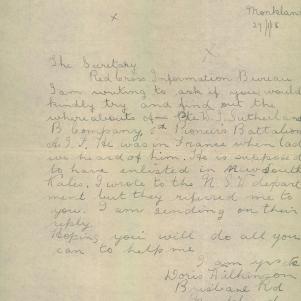 Monkland
The Secretary
Red Cross Information Bureau
I am writing to ask if you would
kindly try and find out the
whereabouts of Pte Sutherland
B Company Pioneers Battalion
A.I.F. He was in France when last
we heard of him. He is supposed
to have enlisted in New South
Wales, I wrote to the N.S.W depart
ment but they referred me to
you. I am sending on their
reply.
Hoping you will do all you
can to help me
I am yrs
Doris Wilkinson
Brisbane Rd